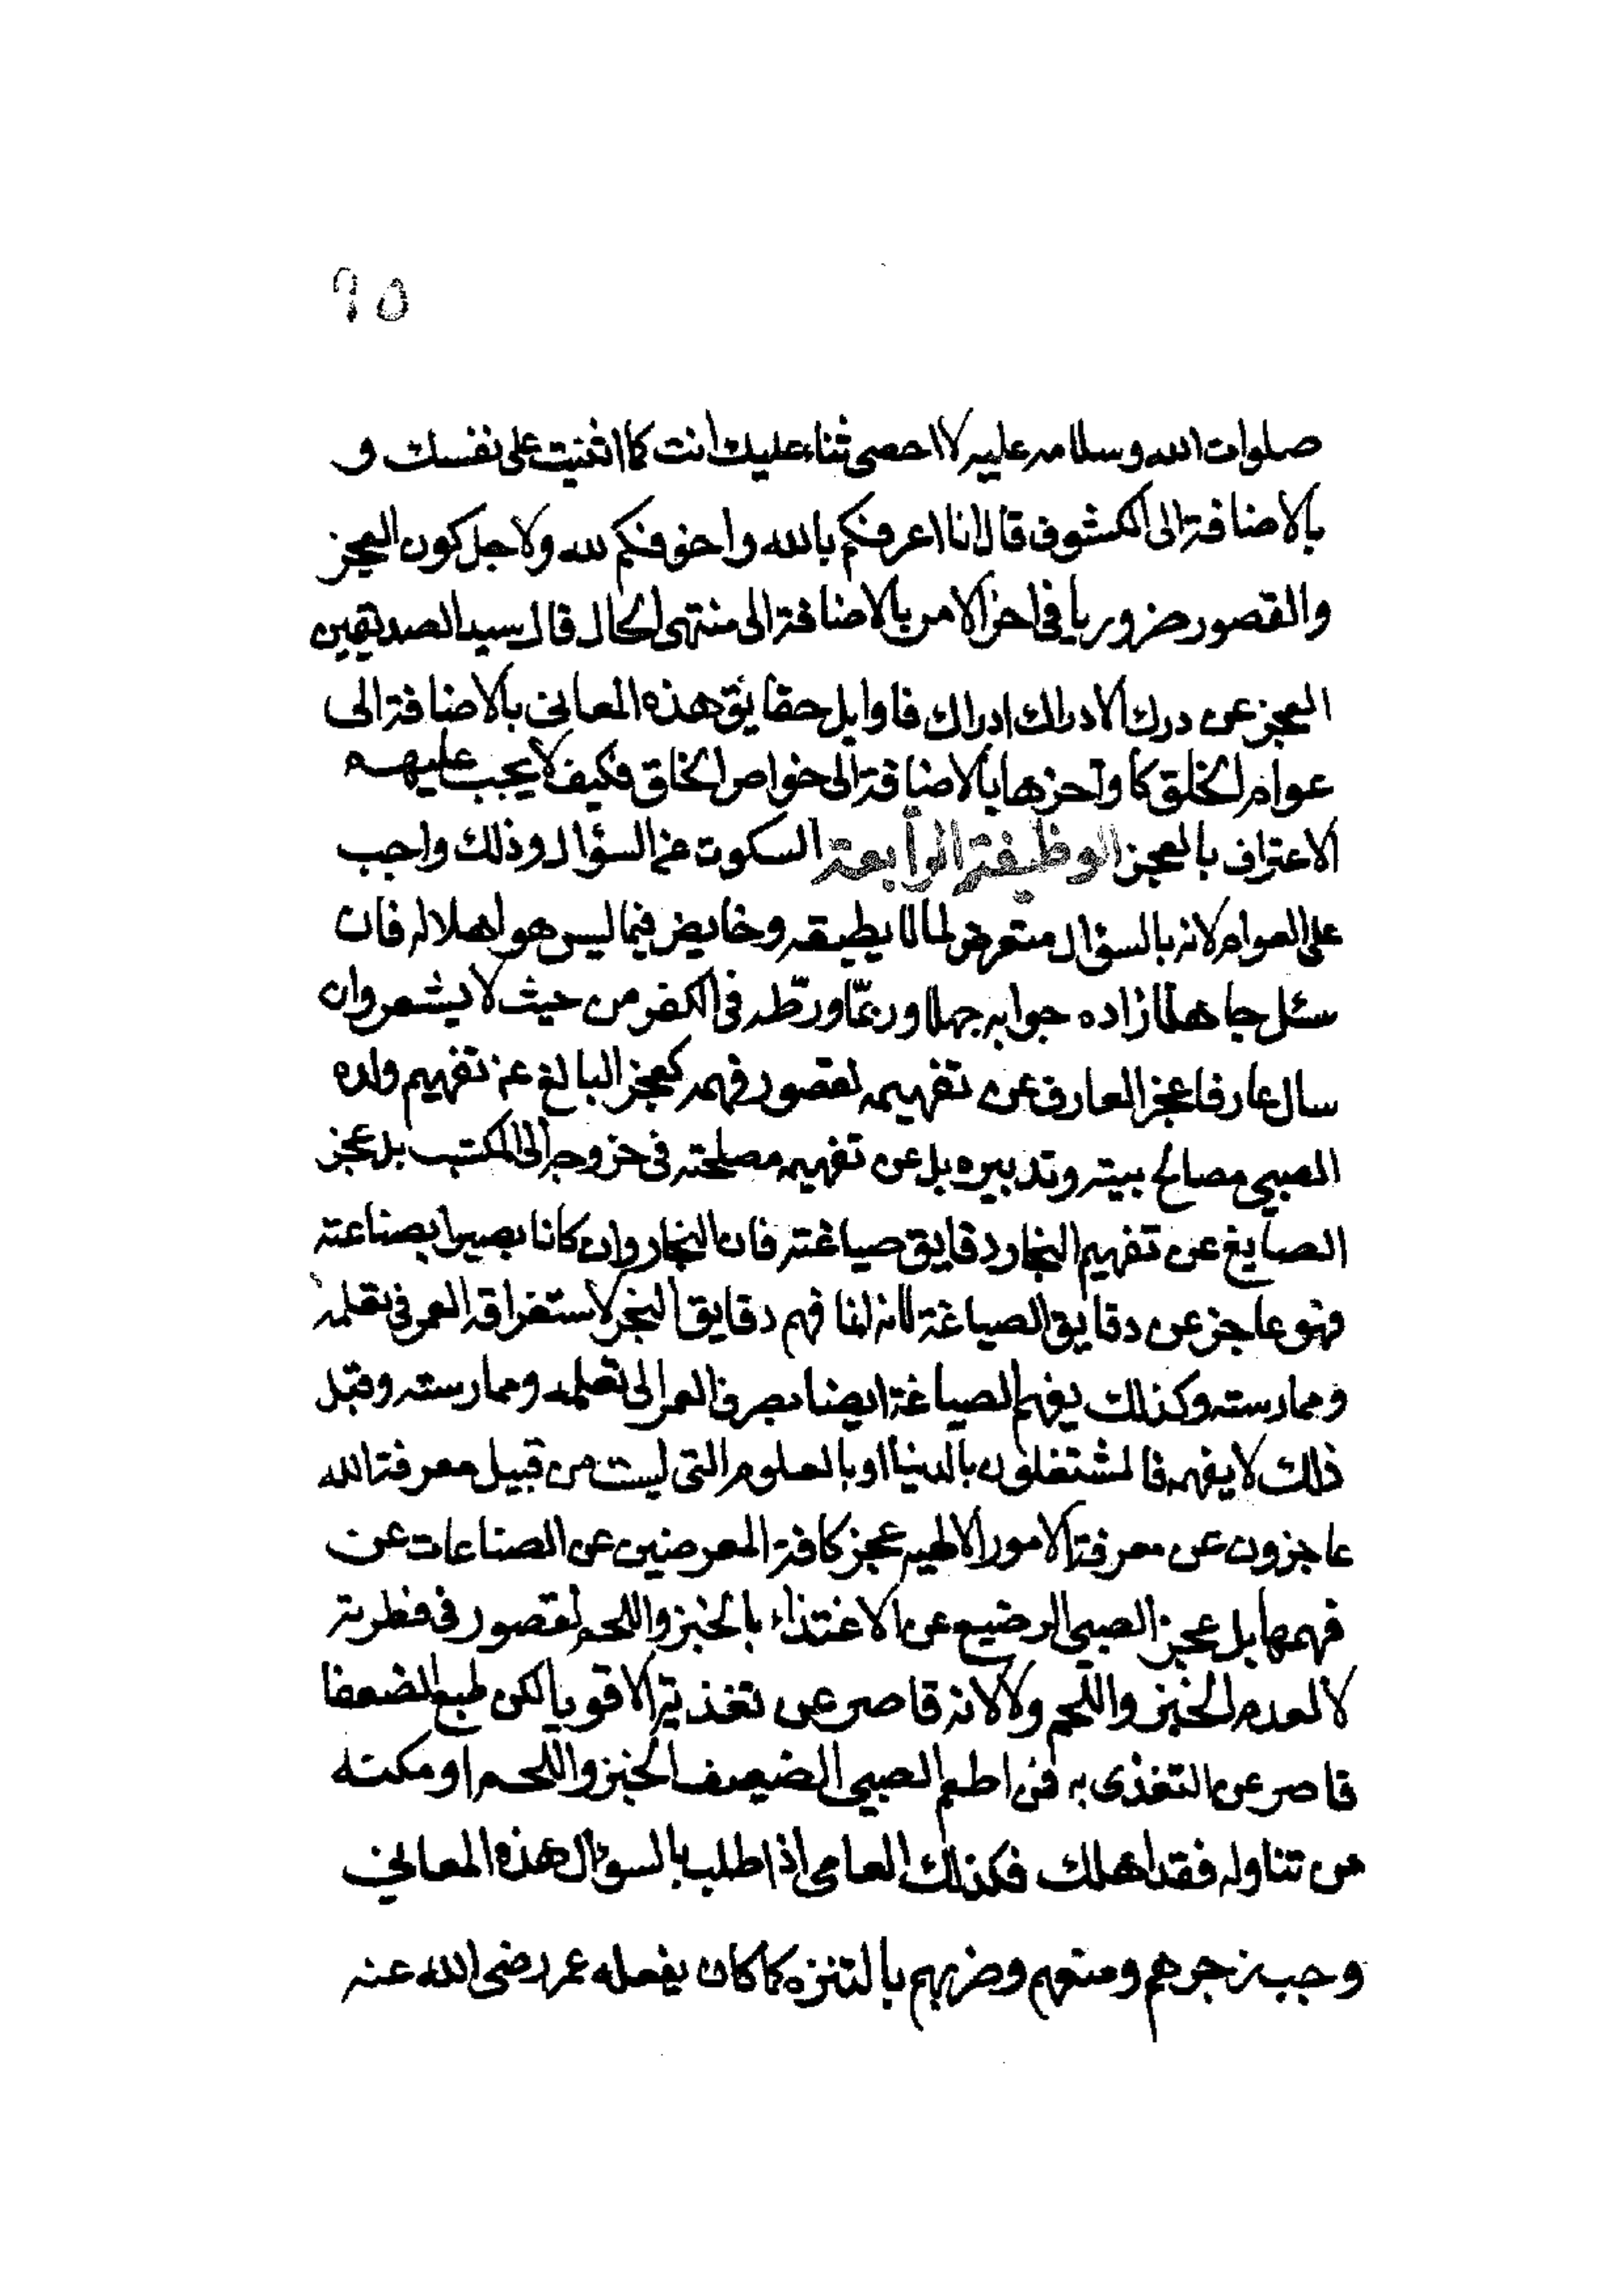 ٩٥
صلوات الله وسلامه عليه لا احصى ثناء عليك انت كما اثنيت على نفسك و
بالاضافة الى المكشوف قال انا اعرفكم بالله واخوفكم لله ولاجل كون العجز
والقصور ضروريا فى اخر الامر بالاضافة الى منتهى الحال قال سيد الصديقين
العجز عن درك الادراك ادراك فاوايل حقايق هذه المعانى بالاضافة الى
عوام الخلق كاواخرها بالاضافة الى خواص الخلق فكيف لا يجب عليهم
الاعتراف بالعجز الوظيفة الرابعة السكوت عن السؤال وذلك واجب
على العوام لانه بالسؤال متعرض لما لا يطيقه وخايض فيما ليس هو اهلا له فان
سئل جاهلا زاده جوابه جهلا وربما ورّطه فى الكفر من حيث لا يشعر وان
سال عارفا عجز العارف عن تفهيمه لقصور فهمه كعجز البالغ عن تفهيم ولده
الصبى مصالح بيته وتدبيره بل عن تفهيمه مصلحته فى خروجه الى المكتب بل عجز
الصايغ عن تفهيم النجار دقايق صياغته فان النجار وان كانا بصيرا بصناعته
فهو عاجز عن دقايق الصياغة لانه انما فهم دقايق النجر لاستغراقه العمر فى تعلمه
وممارسته وكذلك يفهم الصياغة ايضا بصرف العمر الى تعلمه وممارسته وقبل
ذلك لا يفهمه فالمشتغلون بالدنيا او بالعلوم التى ليست من قبيل معرفة الله
عاجزون عن معرفة الامور الالهيه عجز كافة المعرضين عن الصناعات عن
فهمها بل عجز الصبى الرضيع عن الاغتذاء بالخبز واللحم لقصور فى فطرته
لا لعدم الخبز واللحم ولا لانه قاصر عن تغذية الاقويا لكن طبع الضعفا
قاصر عن التغذى به فمن اطعم الصبى الضعيف الخبز واللحم او مكنه
من تناوله فقد اهلك فكذلك العامى اذا طلب بالسؤال هذه المعانى
وجب زجرهم ومنعهم وضربهم بالتنزه كما كان يفعله عمر رضى الله عنه